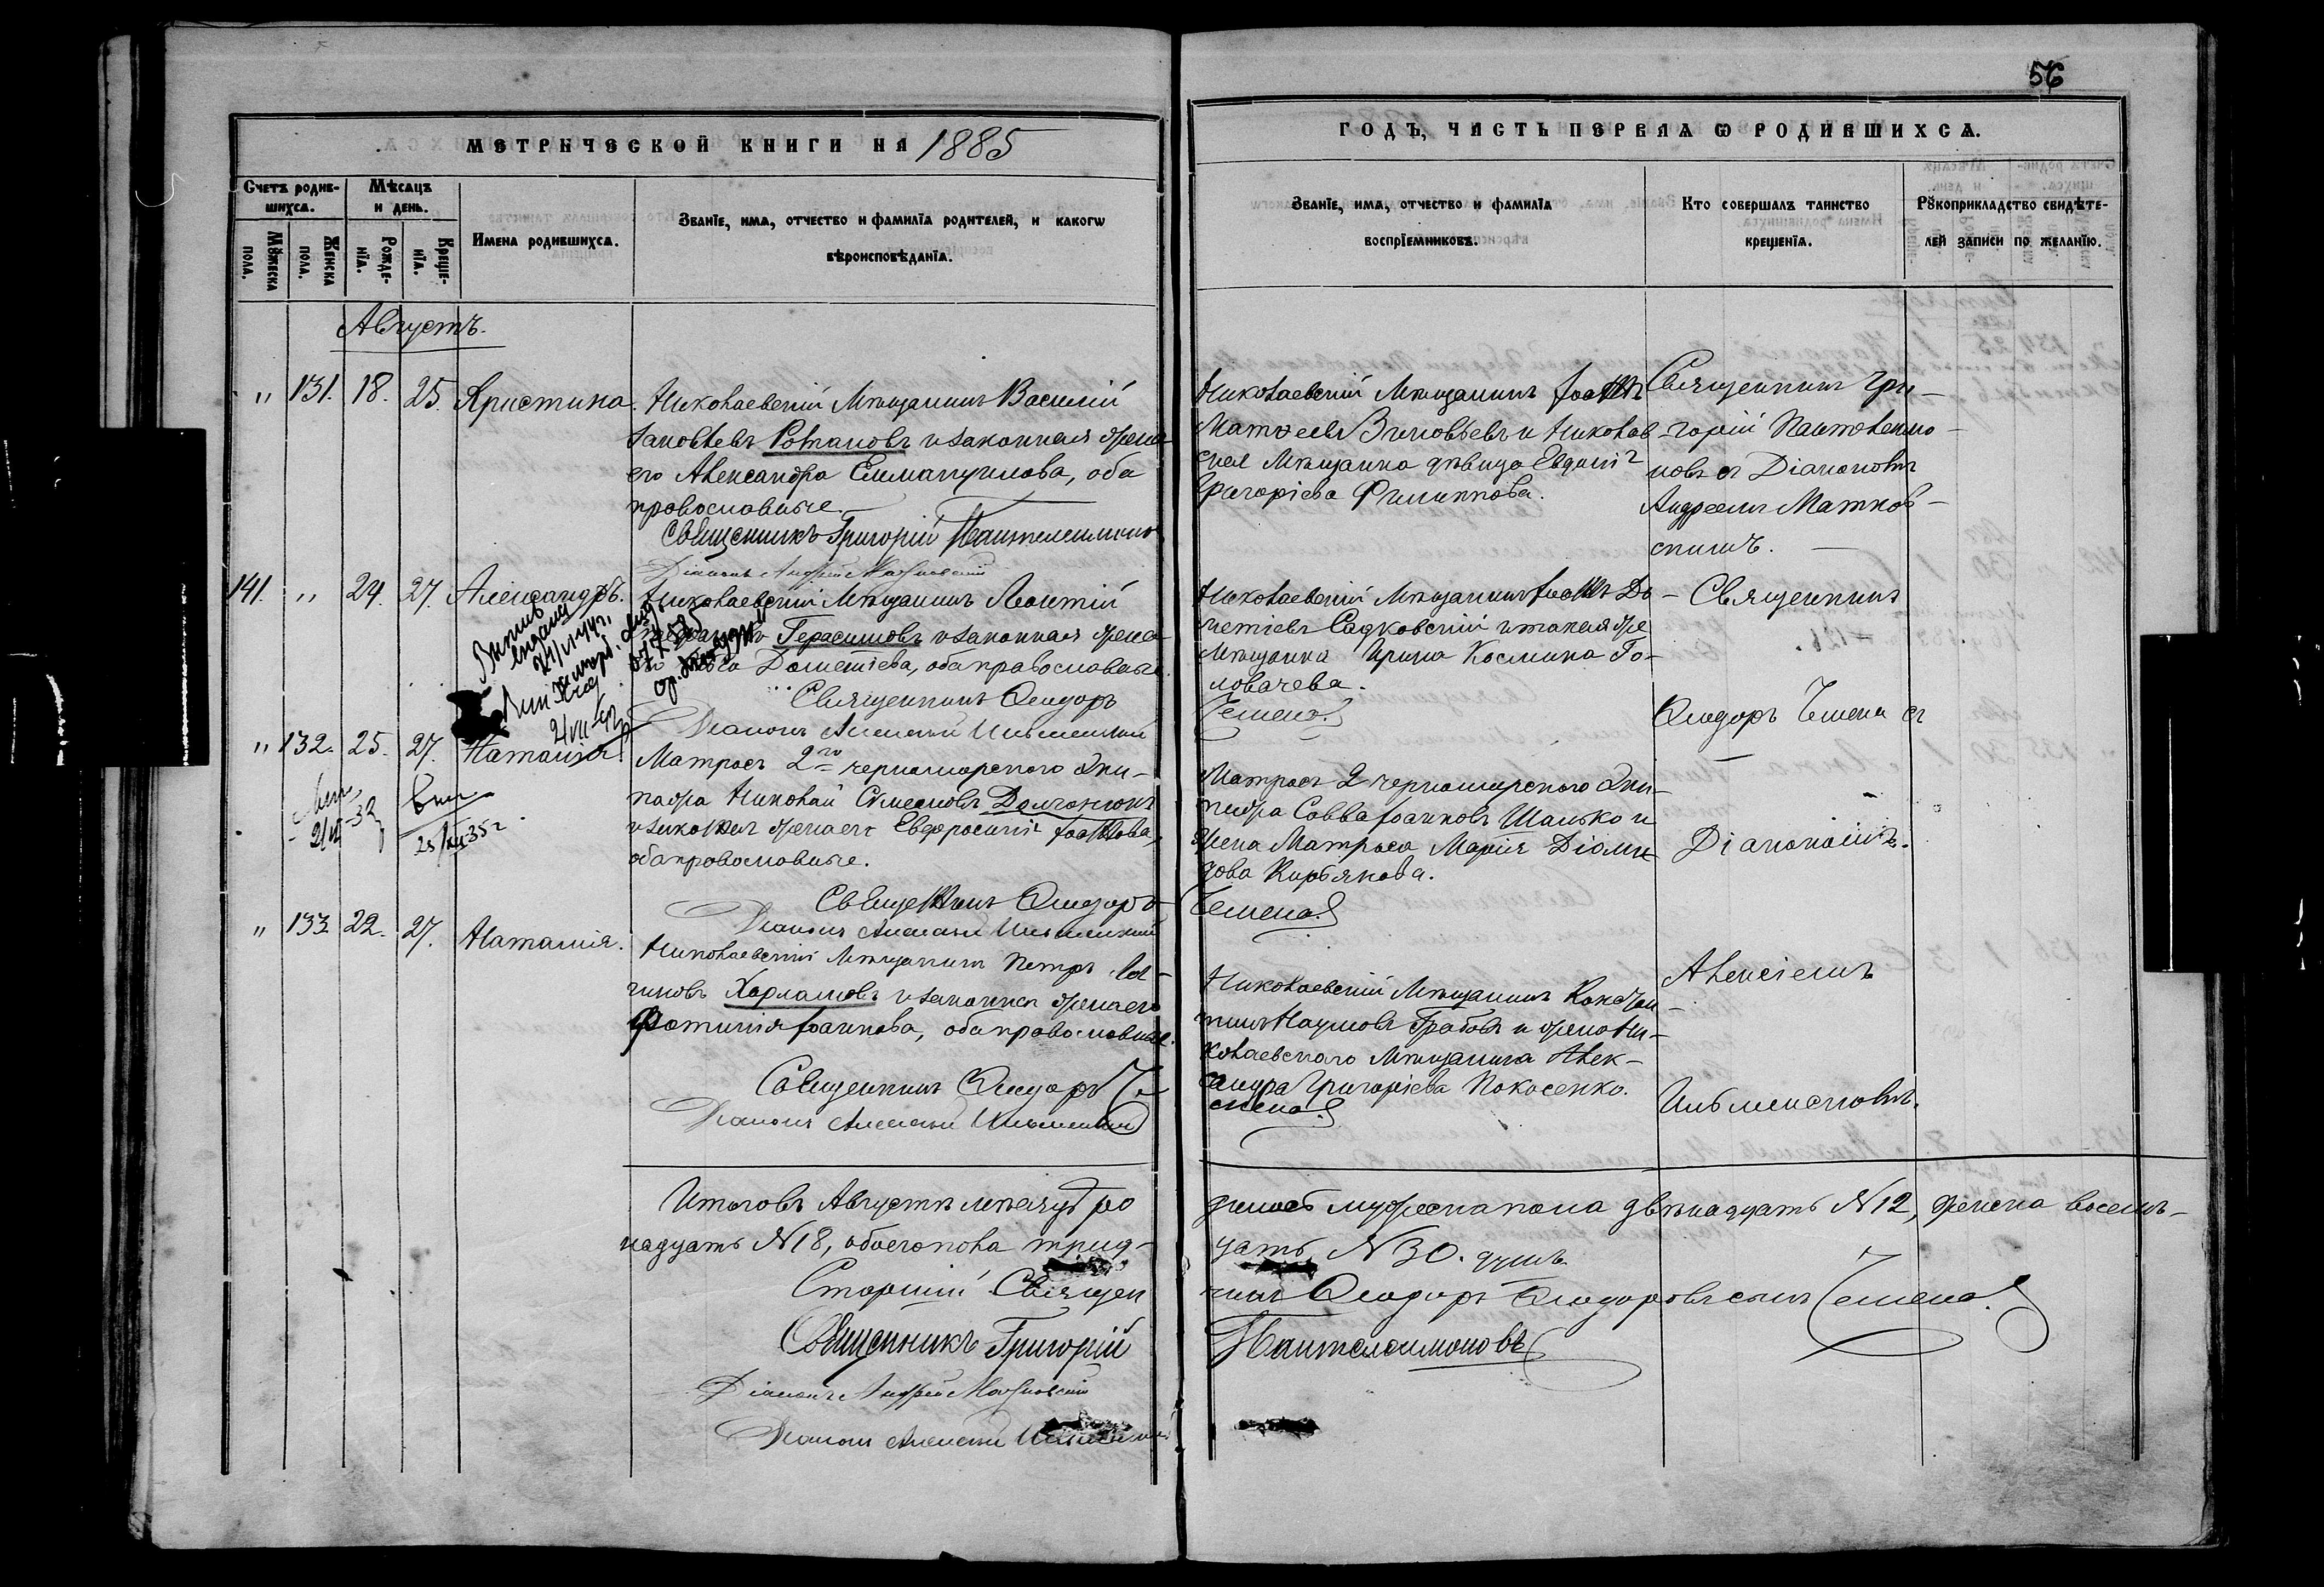 56
МЕТРИЧЕСКОЙ КНИГИ НА 1885
ГОДЪ, ЧАСТЬ ПЕРВАЯ Ѡ РОДИВШИХСЯ.
Счетъ родив-
шихся.
Мѣсяцъ
и день.
Мꙋжеска пола.
Женска пола.
Рожде-
нїя.
Креще-
нїя.
Имена родившихся.
Званїе, имя, отчество и фамилїя родителей, и какогѡ
вѣроисповѣданїя.
Званїе, имя, отчество и фамилїя
воспрїемниковъ.
Кто совершалъ таинство
крещенїя.
Рꙋкоприкладство свидѣте-
лей записи по желанїю.
Августъ.
" 131. 18. 25. Христина.
Николаевскій Мѣщанинъ Василій
Романовъ и законная жена
его Александра Еммануилова, оба
православные.
Священникъ Григорій Пантелеимоновъ
Діаконъ Андрей Матковскій
Николаевскій Мѣщанинъ
Матѳеевъ Зиновьевъ и Николаев-
ская Мѣщанка дѣвица Евдокія
Григоріева Филиппова.
Священникъ Гри-
горій Пантелеимо-
новъ съ Діакономъ
Андреемъ Матков-
скимъ.
141. " 24. 27. Александръ.
Николаевскій Мѣщанинъ Леонтій
Герасимовъ и законная жена
Дометіева, оба православные.
Священникъ Ѳеодоръ
Чемена.
Діаконъ Алексій Ильменскій
Николаевскій Мѣщанинъ Іоаннъ До-
метіевъ Садковскій и
Мѣщанка Ирина Космина Го-
ловачева.
Священникъ
Ѳеодоръ Чемена съ
" 132. 25. 27. Наталія
2/VII-32
25/XII 35 г.
Матросъ 2го черноморского Эки-
пажа Николай Симеоновъ Долгонюкъ
и законная жена его Евфросинія Іоаннова,
оба православные.
Священникъ Ѳеодоръ
Чемена.
Діаконъ Алексій Ильменскій
Матросъ 2 черноморского Эки-
пажа Савва Іоанновъ Шанько и
жена Матроса Марія Діоми-
дова Кирьякова.
Діакономъ.
" 133. 22. 27. Наталія.
Николаевскій Мѣщанинъ Петръ Ло-
гиновъ Харламовъ и законная жена его
Фотинія Іоаннова, оба православные.
Священникъ Ѳеодоръ Че-
мена.
Діаконъ Алексій Ильменскій
Николаевскій Мѣщанинъ Констан-
тинъ Наумовъ Грабовъ и жена Ни-
колаевского Мѣщанина Алек-
сандра Григоріева Покосенко.
Алексіемъ
Ильменскимъ.
Итого въ Августѣ мѣсяцѣ ро
дилось мужеска пола двѣнадцать №12, женска восем-
надцать №18, обоего пола трид-
цать №30. душъ.
Старшій Священ
никъ Ѳеодоръ Ѳеодоровъ сынъ Чемена.
Священникъ Григорій
Пантелеимоновъ
Діаконъ Андрей Матковскій
Діаконъ Алексій Ильменскій